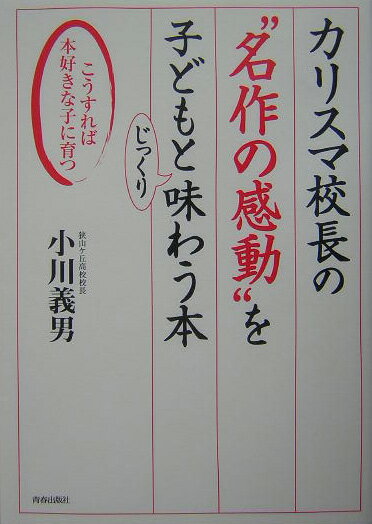 カリスマ校長の
”名作の感動“を
子どもと味わう本
じっくり
こうすれば
本好きな子に育つ
狭山ヶ丘高校校長
小川義男
青春出版社